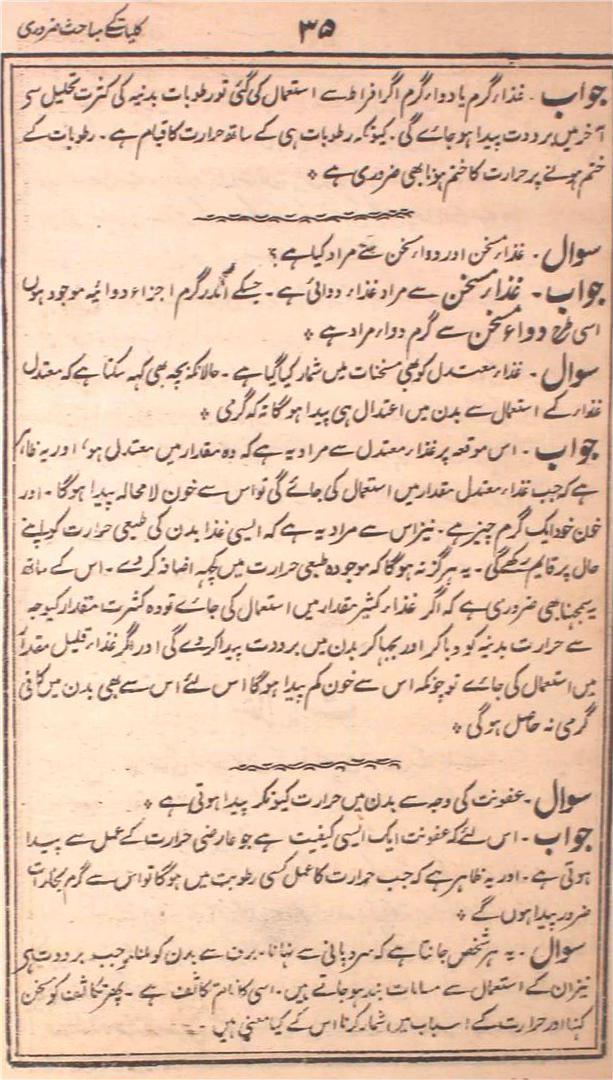 کلیات کے مباحث ضروری
۳۵
جواب ۔ غذاء گرم یا دواء گرم اگر افراط سے استعمال کی گئی تو رطوبات بدنیہ کی کثرت تحلیل سے
آخر میں برودت پیدا ہو جائے گی ۔ کیونکہ رطوبات ہی کے ساتھ حرارت کا قیام ہے ۔ رطوبات کے
ختم ہونے پر حرارت کا ختم ہونا بھی ضروری ہے ٭
سوال ۔ غذاء مسخن اور دواء مسخن سے مراد کیا ہے ؟
جواب ۔ غذاء مسخن سے مراد غذاء دوائی ہے ۔ جسکے اندر گرم اجزاء دوائیہ موجود ہوں
اسی طرح دواء مسخن سے گرم دواء مراد ہے ٭
سوال ۔ غذاء معتدل کو بھی مسخنات میں شمار کیا گیا ہے ۔ حالانکہ بچہ بھی کہہ سکتا ہے کہ معتدل
غذاء کے استعمال سے بدن میں اعتدال ہی پیدا ہوگا نہ کہ گرمی ٭
جواب ۔ اس موقعہ پر غذاء معتدل سے مراد یہ ہے کہ وہ مقدار میں معتدل ہو، اور یہ ظاہر
ہے کہ جب غذاء معتدل مقدار میں استعمال کی جائے گی تو اس سے خون لامحالہ پیدا ہوگا ۔ اور
خون خود ایک گرم چیز ہے ۔ نیز اس سے مراد یہ ہے کہ ایسی غذا بدن کی طبیعی حرارت کو اپنے
حال پر قایم رکھے گی ۔ یہ ہرگز نہ ہوگا کہ موجودہ طبیعی حرارت میں کچھ اضافہ کر دے ۔ اس کے ساتھ
یہ سمجھنا بھی ضروری ہے کہ اگر غذاء کثیر مقدار میں استعمال کی جائے تو وہ کثرت مقدار کیوجہ
سے حرارت بدنیہ کو دبا کر اور بجھا کر بدن میں برودت پیدا کر دے گی اور اگر غذاء قلیل مقدار
میں استعمال کی جائے تو چونکہ اس سے خون کم پیدا ہوگا اس لئے اس سے بھی بدن میں کافی
گرمی نہ حاصل ہوگی ٭
سوال ۔ عفونت کی وجہ سے بدن میں حرارت کیونکر پیدا ہوتی ہے ٭
جواب ۔ اس لئے کہ عفونت ایک ایسی کیفیت ہے جو عارضی حرارت کے عمل سے پیدا
ہوتی ہے ۔ اور یہ ظاہر ہے کہ جب حرارت کا عمل کسی رطوبت میں ہوگا تو اس سے گرم بخارات
ضرور پیدا ہوں گے ٭
سوال ۔ یہ ہر شخص جانتا ہے کہ سرد پانی سے نہانا ۔ برف سے بدن کو ملنا موجب برودت ہے
نیز ان کے استعمال سے مسامات بند ہو جاتے ہیں ۔ اسی کا نام تکاثف ہے ۔ پھر تکاثف کو مسخن
کہنا اور حرارت کے اسباب میں شمار کرنا اس کے کیا معنی ہیں ۔